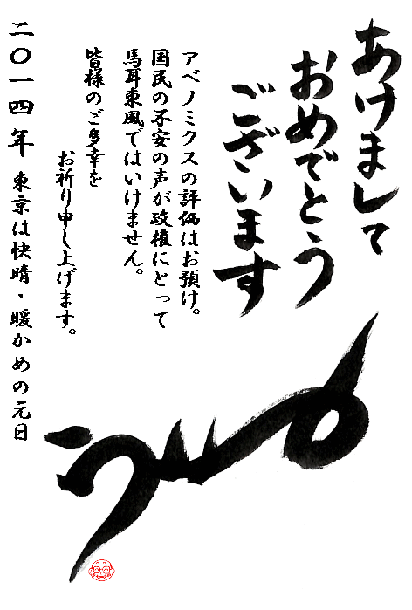 あけまして
おめでとう
ございます
アベノミクスの評価はお預け。
国民の不安の声が政権にとって
馬耳東風ではいけません。
皆様のご多幸を
お祈り申し上げます。
二〇一四年 東京は快晴・暖かめの元日
うま